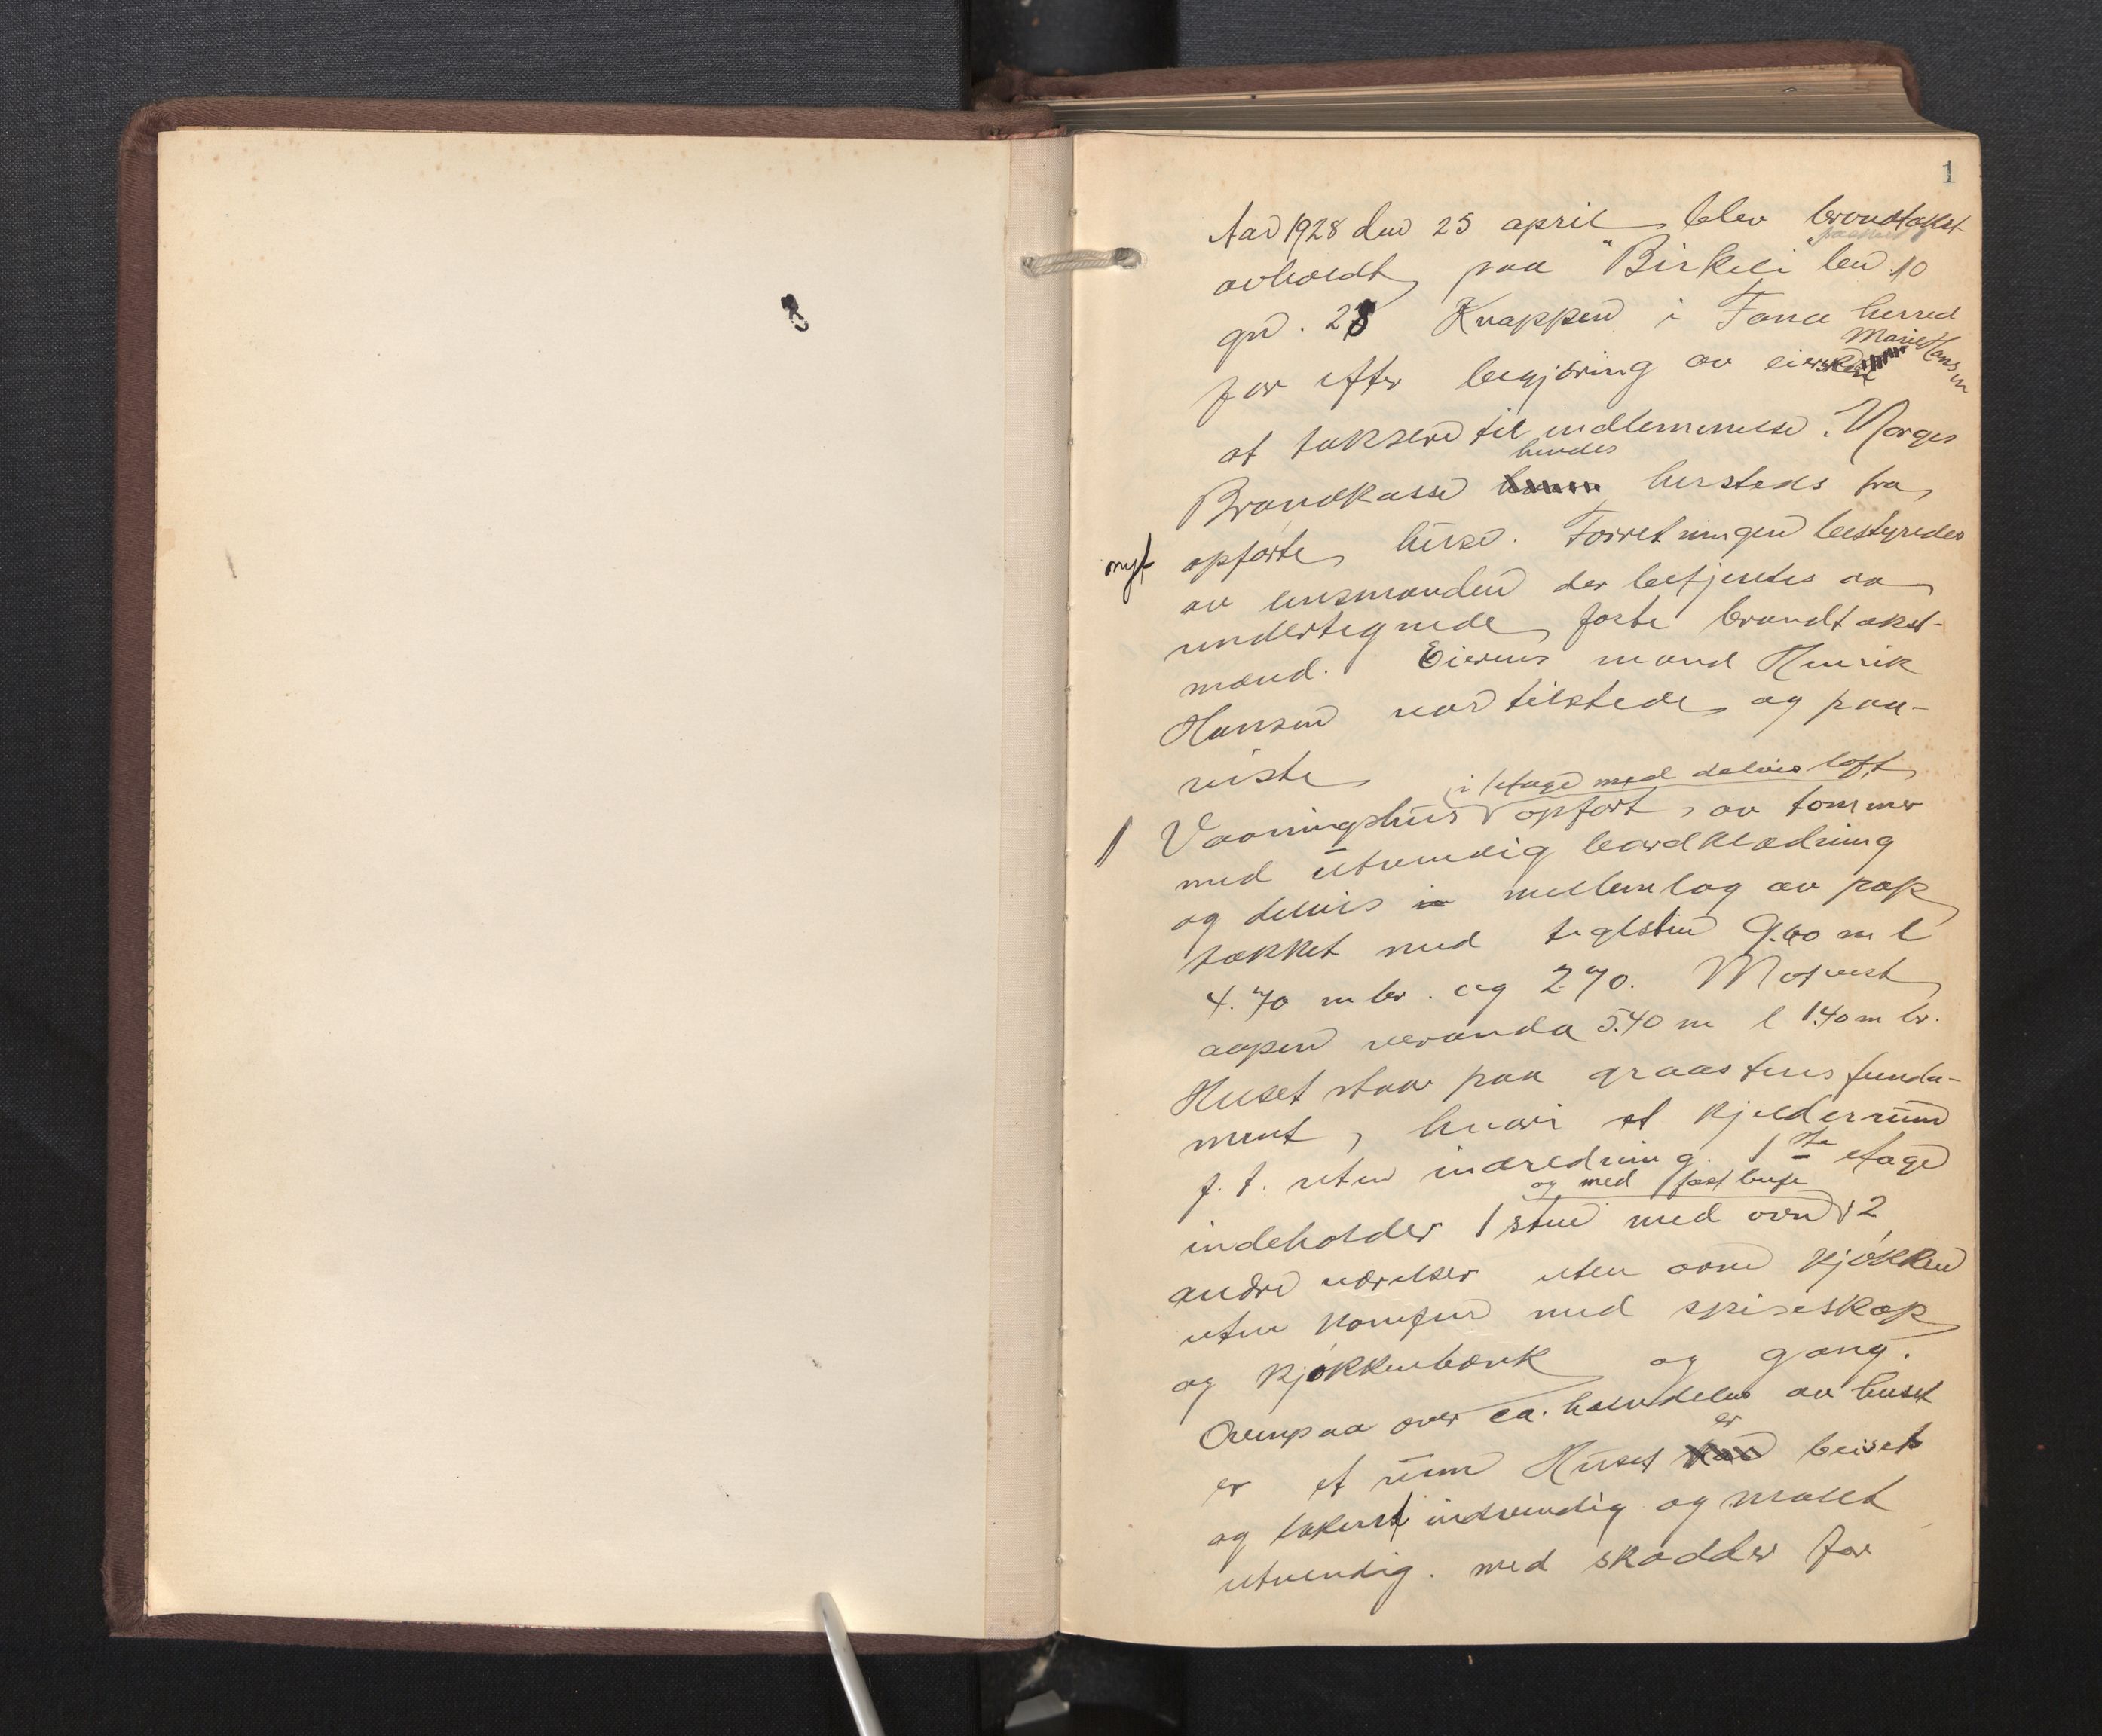 1
Aar 1928 den 25 april blev brandtakst
avholdt paa "Birkeli" bn. 10
gn. 28 Knappen i Fana herred
Marie Hansen
for efter begjæring av eiersken
at taksere til indlemmelse i Norges
hendes
Brandkasse hersteds fra
nyt opførte huse. Forretningen bestyredes
av lensmanden der betjentes av
undertegnede faste brandtakst-
mænd. Eierens mand Henrik
Hansen var tilstede og paa-
viste
i 1 etage med delvis loft
1 Vaaningshus opført, av tømmer
med utvendig bordklædning
og delvis mellemlag av pap
tækket med teglsten 9.60 m l
4.70 m br. og 2.70. Mot vest
aapen veranda 5.40 m l 1.40 m br.
Huset staar paa graastensfunda-
ment, hvori et kjelderrum
f. t. uten indredning. 1ste etage
og med fast
indeholder 1 stue med ovn 2
andre værelser uten ovne kjøkken
uten komfur med spiseskap
og kjøkkenbænk og gang.
Ovenpaa over ca. halvdelen av huset
er
er et rum Huset beiset
og lakert indvendig og malet
utvendig. med skodder for